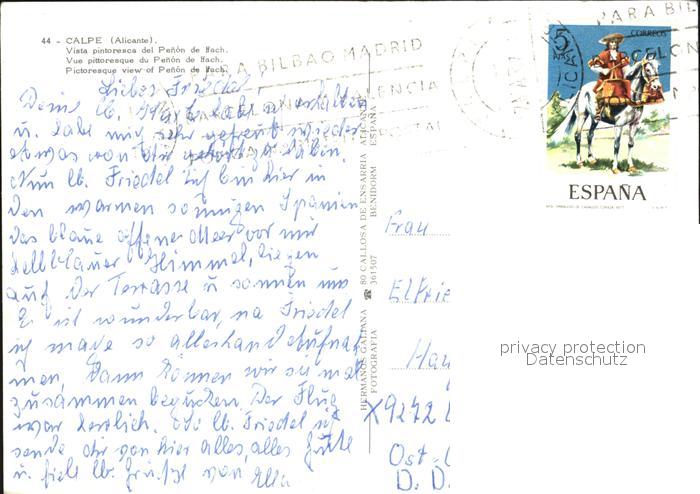 44 - CALPE (Alicante).
Vista pintoresca del Peñón de Ifach.
Vue pittoresque du Peñón de Ifach.
Picturesque view of Peñón de Ifach.
PARA BILBAO MADRID
VALENCIA
POSTAL
PARA BIL
5
PTAS
CORREOS
ESPAÑA
Lieber Friedel,
Deine lb. erhalten
u. habe mich sehr gefreut wieder
etwas von dir gehört zu haben.
Nun lb. Friedel ich bin hier in
den warmen sonnigen Spanien
das blaue offene Meer vor mir
hellblauer Himmel, liegen
auf der Terrasse u sonnen uns
Es ist wunderbar, na Friedel
ich mache so allerhand Aufnah
men, Dann können wir sie mal
zusammen begucken. Der Flug
war herrlich. lb. Friedel ich
sende dir von hier alles, alles Gute
u. viele lb. Grüße von Ella
HERMANOS GALIANA 80 CALLOSA DE ENSARRIA ALICANTE
FOTOGRAFIA 361507 BENIDORM ESPAÑA
Frau
Elfrie
Hau
X9272
Ost-
D. D.
privacy protection
Datenschutz